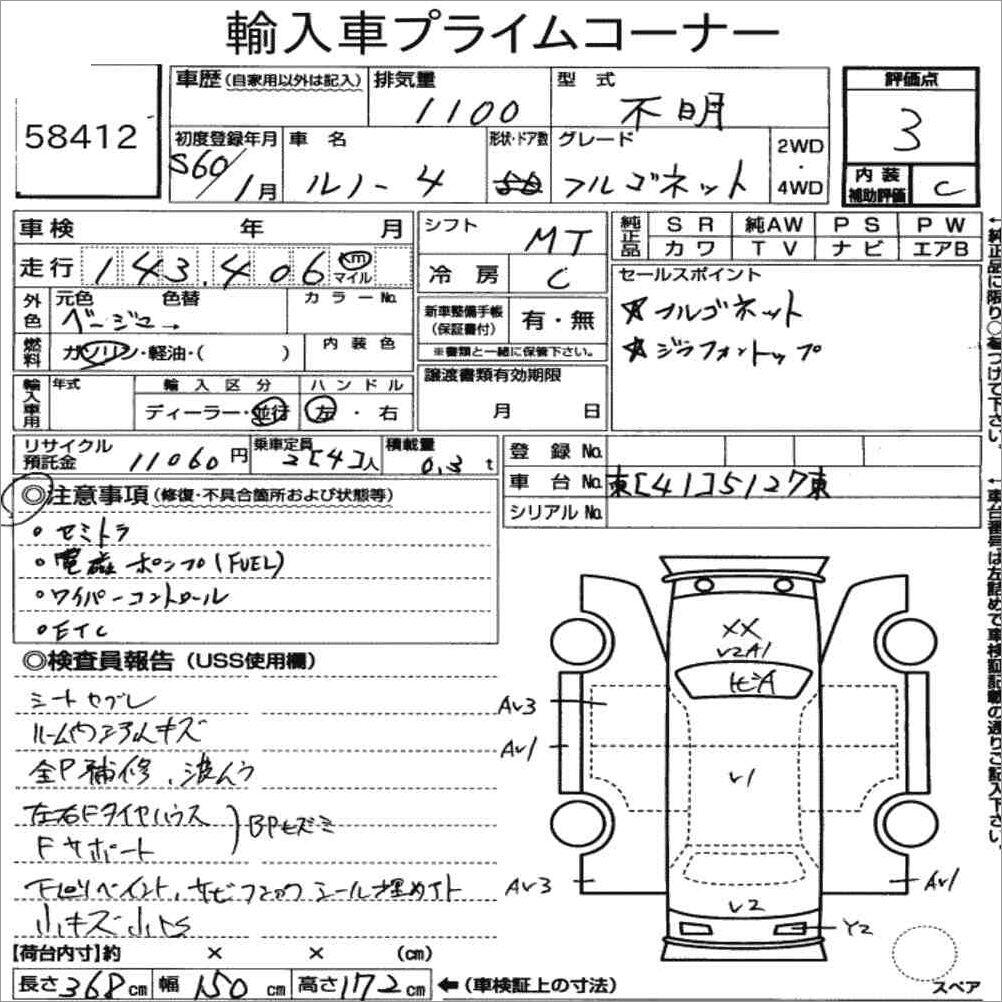 輸入車プライムコーナー
58412
車歴(自家用以外は記入)
排気量
1100
型 式
不明
評価点
3
初度登録年月
S60/1月
車 名
ルノー4
形状・ドア数
グレード
フルゴネット
2WD
・
4WD
内 装
補助評価
C
車検 年 月
シフト
MT
純正品
S R 純AW P S P W
カワ T V ナビ エアB
走行 143,406 km
マイル
冷 房
C
セールスポイント
★フルゴネット
★ジラフォントップ
外色
元色 色替
ベージュ→
カラーNo.
新車整備手帳
(保証書付)
有・無
※書類と一緒に保管下さい。
燃料
ガソリン・軽油・( )
内 装 色
輸入車用
年式
輸 入 区 分
ディーラー・並行
ハ ン ド ル
左・右
譲渡書類有効期限
月 日
リサイクル
預託金
11060円
乗車定員
2[4]人
積載量
0.3t
登 録 No.
車 台 No.
東[41]5127東
シリアル No.
◎注意事項(修復・不具合箇所および状態等)
○セミトラ
○電磁ポンプ(FUEL)
○ワイパーコントロール
○ETC
◎検査員報告(USS使用欄)
シートヤブレ
全P補修、波
左右Fタイヤハウス
Fサポート
BPヒズミ
下回りペイント、サビ
小キズ
XX
V2A1
ヒビA
AV3
AV1
V1
AV3
V2
AV1
Y2
スペア
【荷台内寸】約 × × (cm)
長さ368cm 幅150cm 高さ172cm
←(車検証上の寸法)
←純正品に限り○をつけて下さい。
←車台番号は左詰めで車検証記載の通りご記入下さい。